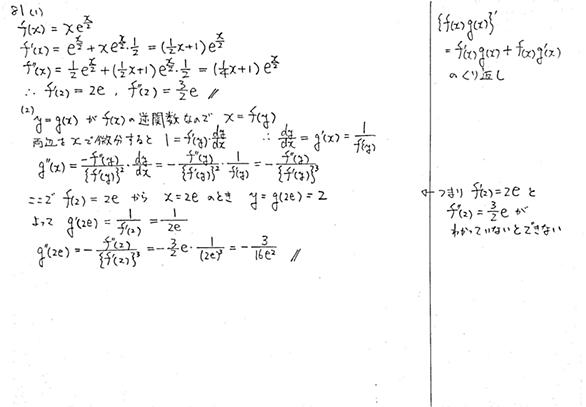 21 (1)
f(x) = x e^{x/2}
f'(x) = e^{x/2} + x e^{x/2}・1/2 = (1/2 x + 1) e^{x/2}
f''(x) = 1/2 e^{x/2} + (1/2 x + 1) e^{x/2}・1/2 = (1/4 x + 1) e^{x/2}
∴ f'(2) = 2e , f''(2) = 3/2 e //
(2)
y = g(x) が f(x) の逆関数なので x = f(y)
両辺を x で微分すると 1 = f'(y)・dy/dx ∴ dy/dx = g'(x) = 1/f'(y)
g''(x) = -f''(y)/{f'(y)}^2・dy/dx = - f''(y)/{f'(y)}^2・1/f'(y) = - f''(y)/{f'(y)}^3
ここで f(2) = 2e から x = 2e のとき y = g(2e) = 2
よって g'(2e) = 1/f'(2) = 1/2e
g''(2e) = - f''(2)/{f'(2)}^3 = - 3/2 e・1/(2e)^3 = - 3/16e^2 //
{f(x) g(x)}'
= f'(x) g(x) + f(x) g'(x)
のくり返し
← つまり f'(2) = 2e と
f''(2) = 3/2 e が
わかっていないとできない